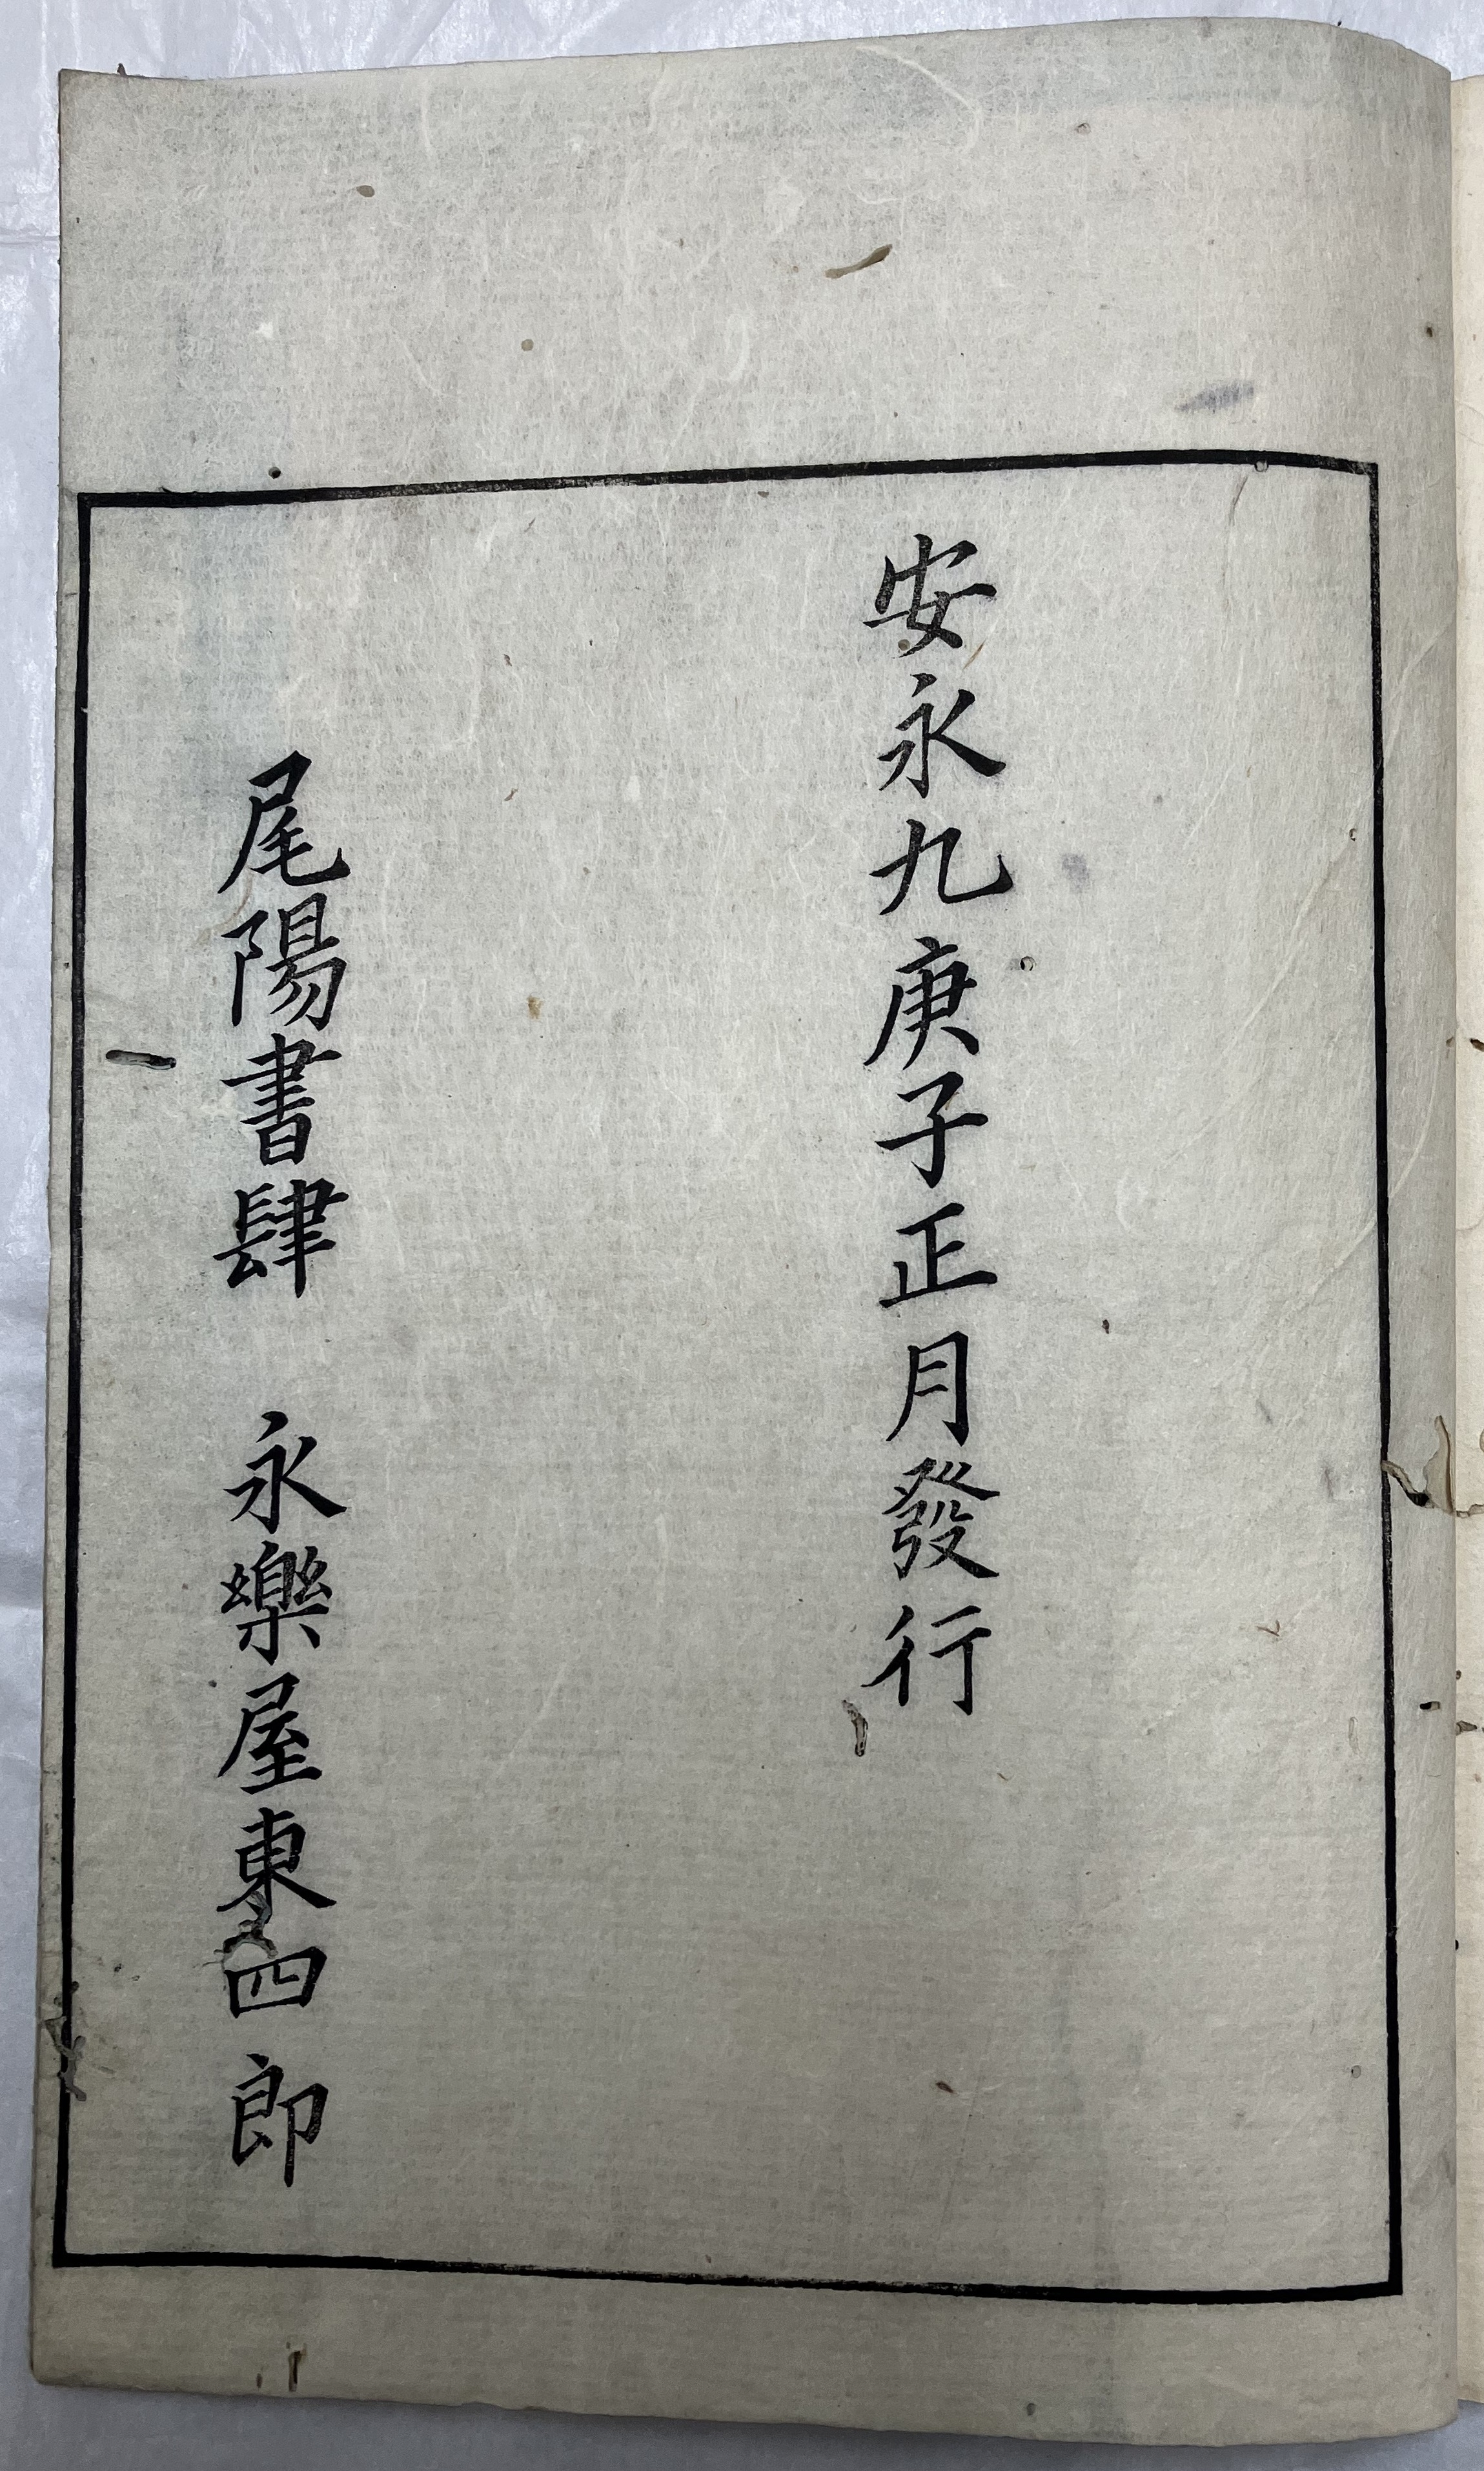 安永九庚子正月發行
尾陽書肆　永樂屋東四郎